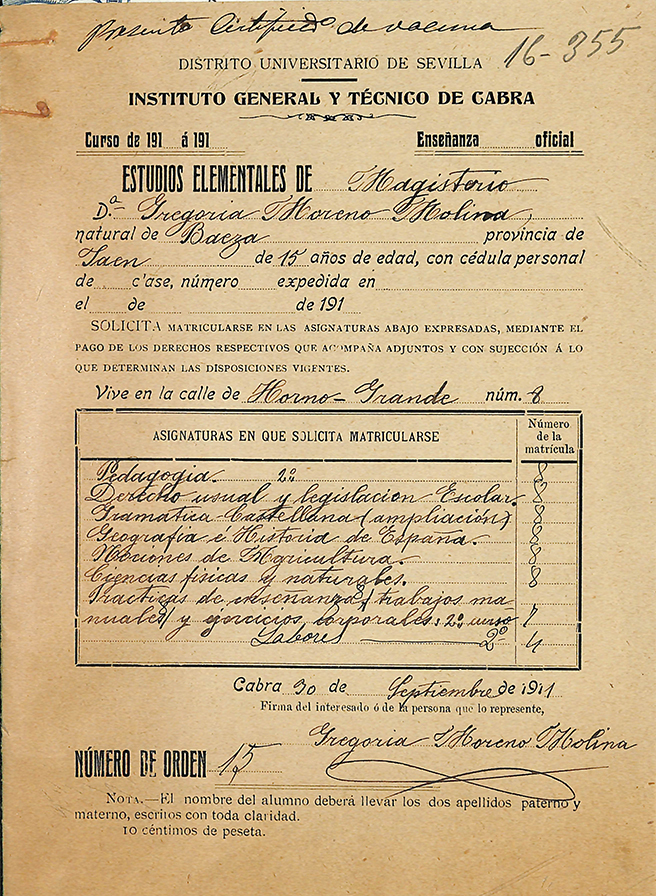 Presenta Certificdº de vacuna
16-355
DISTRITO UNIVERSITARIO DE SEVILLA
INSTITUTO GENERAL Y TÉCNICO DE CABRA
Curso de 191 á 191 Enseñanza oficial
ESTUDIOS ELEMENTALES DE Magisterio
D.ª Gregoria Moreno Molina,
natural de Baeza provincia de
Jaen de 15 años de edad, con cédula personal
de c'ase, número expedida en
el de de 191
SOLICITA MATRICULARSE EN LAS ASIGNATURAS ABAJO EXPRESADAS, MEDIANTE EL
PAGO DE LOS DERECHOS RESPECTIVOS QUE ACOMPAÑA ADJUNTOS Y CON SUJECCIÓN Á LO
QUE DETERMINAN LAS DISPOSICIONES VIGENTES.
Vive en la calle de Horno-Grande núm. 8
ASIGNATURAS EN QUE SOLICITA MATRICULARSE Número de la matrícula
Pedagogia. 2º 8
Derecho usual y legislacion Escolar. 8
Gramatica Castellana (ampliación) 8
Geografia e Historia de España. 8
Nociones de Agricultura. 8
Ciencias fisicas y naturales. 8
Practicas de enseñanza, trabajos ma-
nuales y ejercicios corporales: 2º curso 7
Labores 2º 4
Cabra 30 de Septiembre de 1911
Firma del interesado ó de la persona que lo represente,
Gregoria Moreno Molina
NÚMERO DE ORDEN 15
NOTA.—El nombre del alumno deberá llevar los dos apellidos paterno y
materno, escritos con toda claridad.
10 céntimos de peseta.